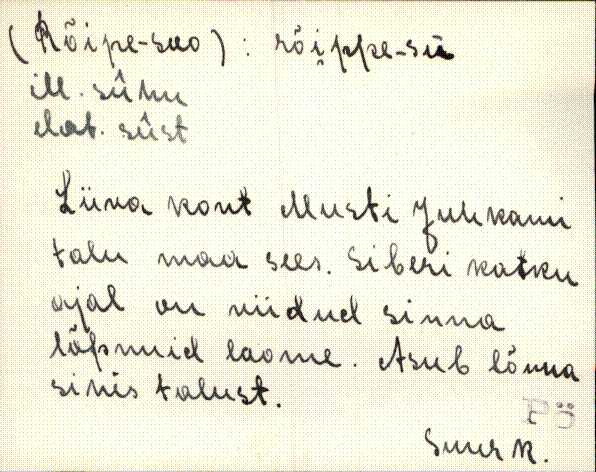 (Rõipe-suo) : rõippe-sū
ill. sûhu
elat. sûst
Liiva kont Musti Juhkami
talu maa sees. Siberi katku
ajal on viidud sinna
lõpnuid laome. Asub lõuna
sihis talust.
Suur K.